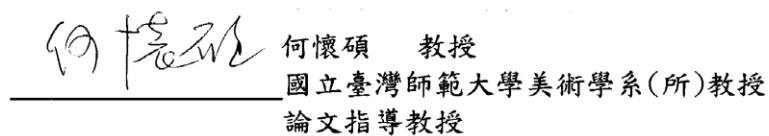 何懷碩 何懷碩 教授
國立臺灣師範大學美術學系(所)教授
論文指導教授